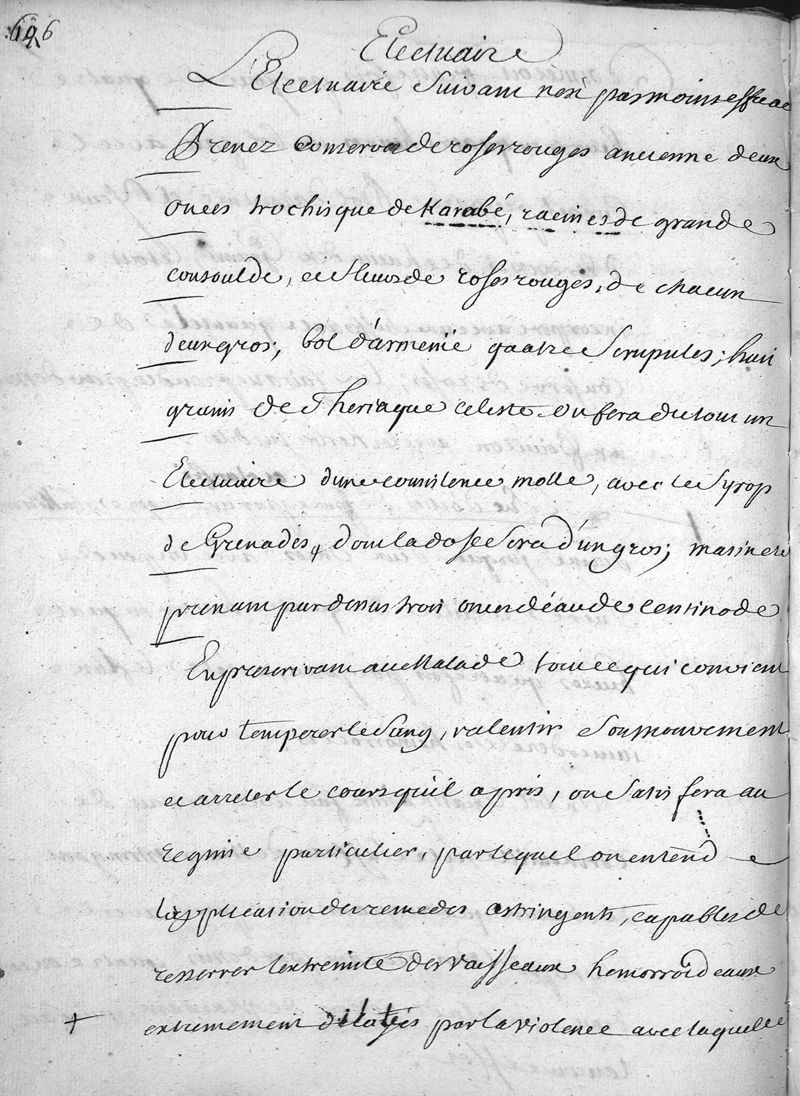 696
Electuaire
L'Electuaire Suivant n'est pas moins efficac
Prenez conserve de roses rouges ancienne deux
onces trochisque de Karabé, racines de grande
consoulde, et fleurs de roses rouges, de chacun
deux gros; bol d'armenie quatre Scrupules; huit
grains de Theriaque celeste. on fera du tout un
Electuaire d'une consistence molle, avec le Syrop
de Grenades, dont la dose Sera d'un gros; matin et s
prenant par dessus trois onces d'éau de Centinode
En prescrivant au Malade tout ce qui convient
pour temperer le Sang, ralentir Son mouvement
et arreter le cours qu'il a pris, on Satisfera au
regime particulier, par lequel on entend
l'application des remedes astringents, capables de
resserrer l'extremité des Vaisseaux hemorroïdeaux
+ extremement dilatés par la violence avec laquelle